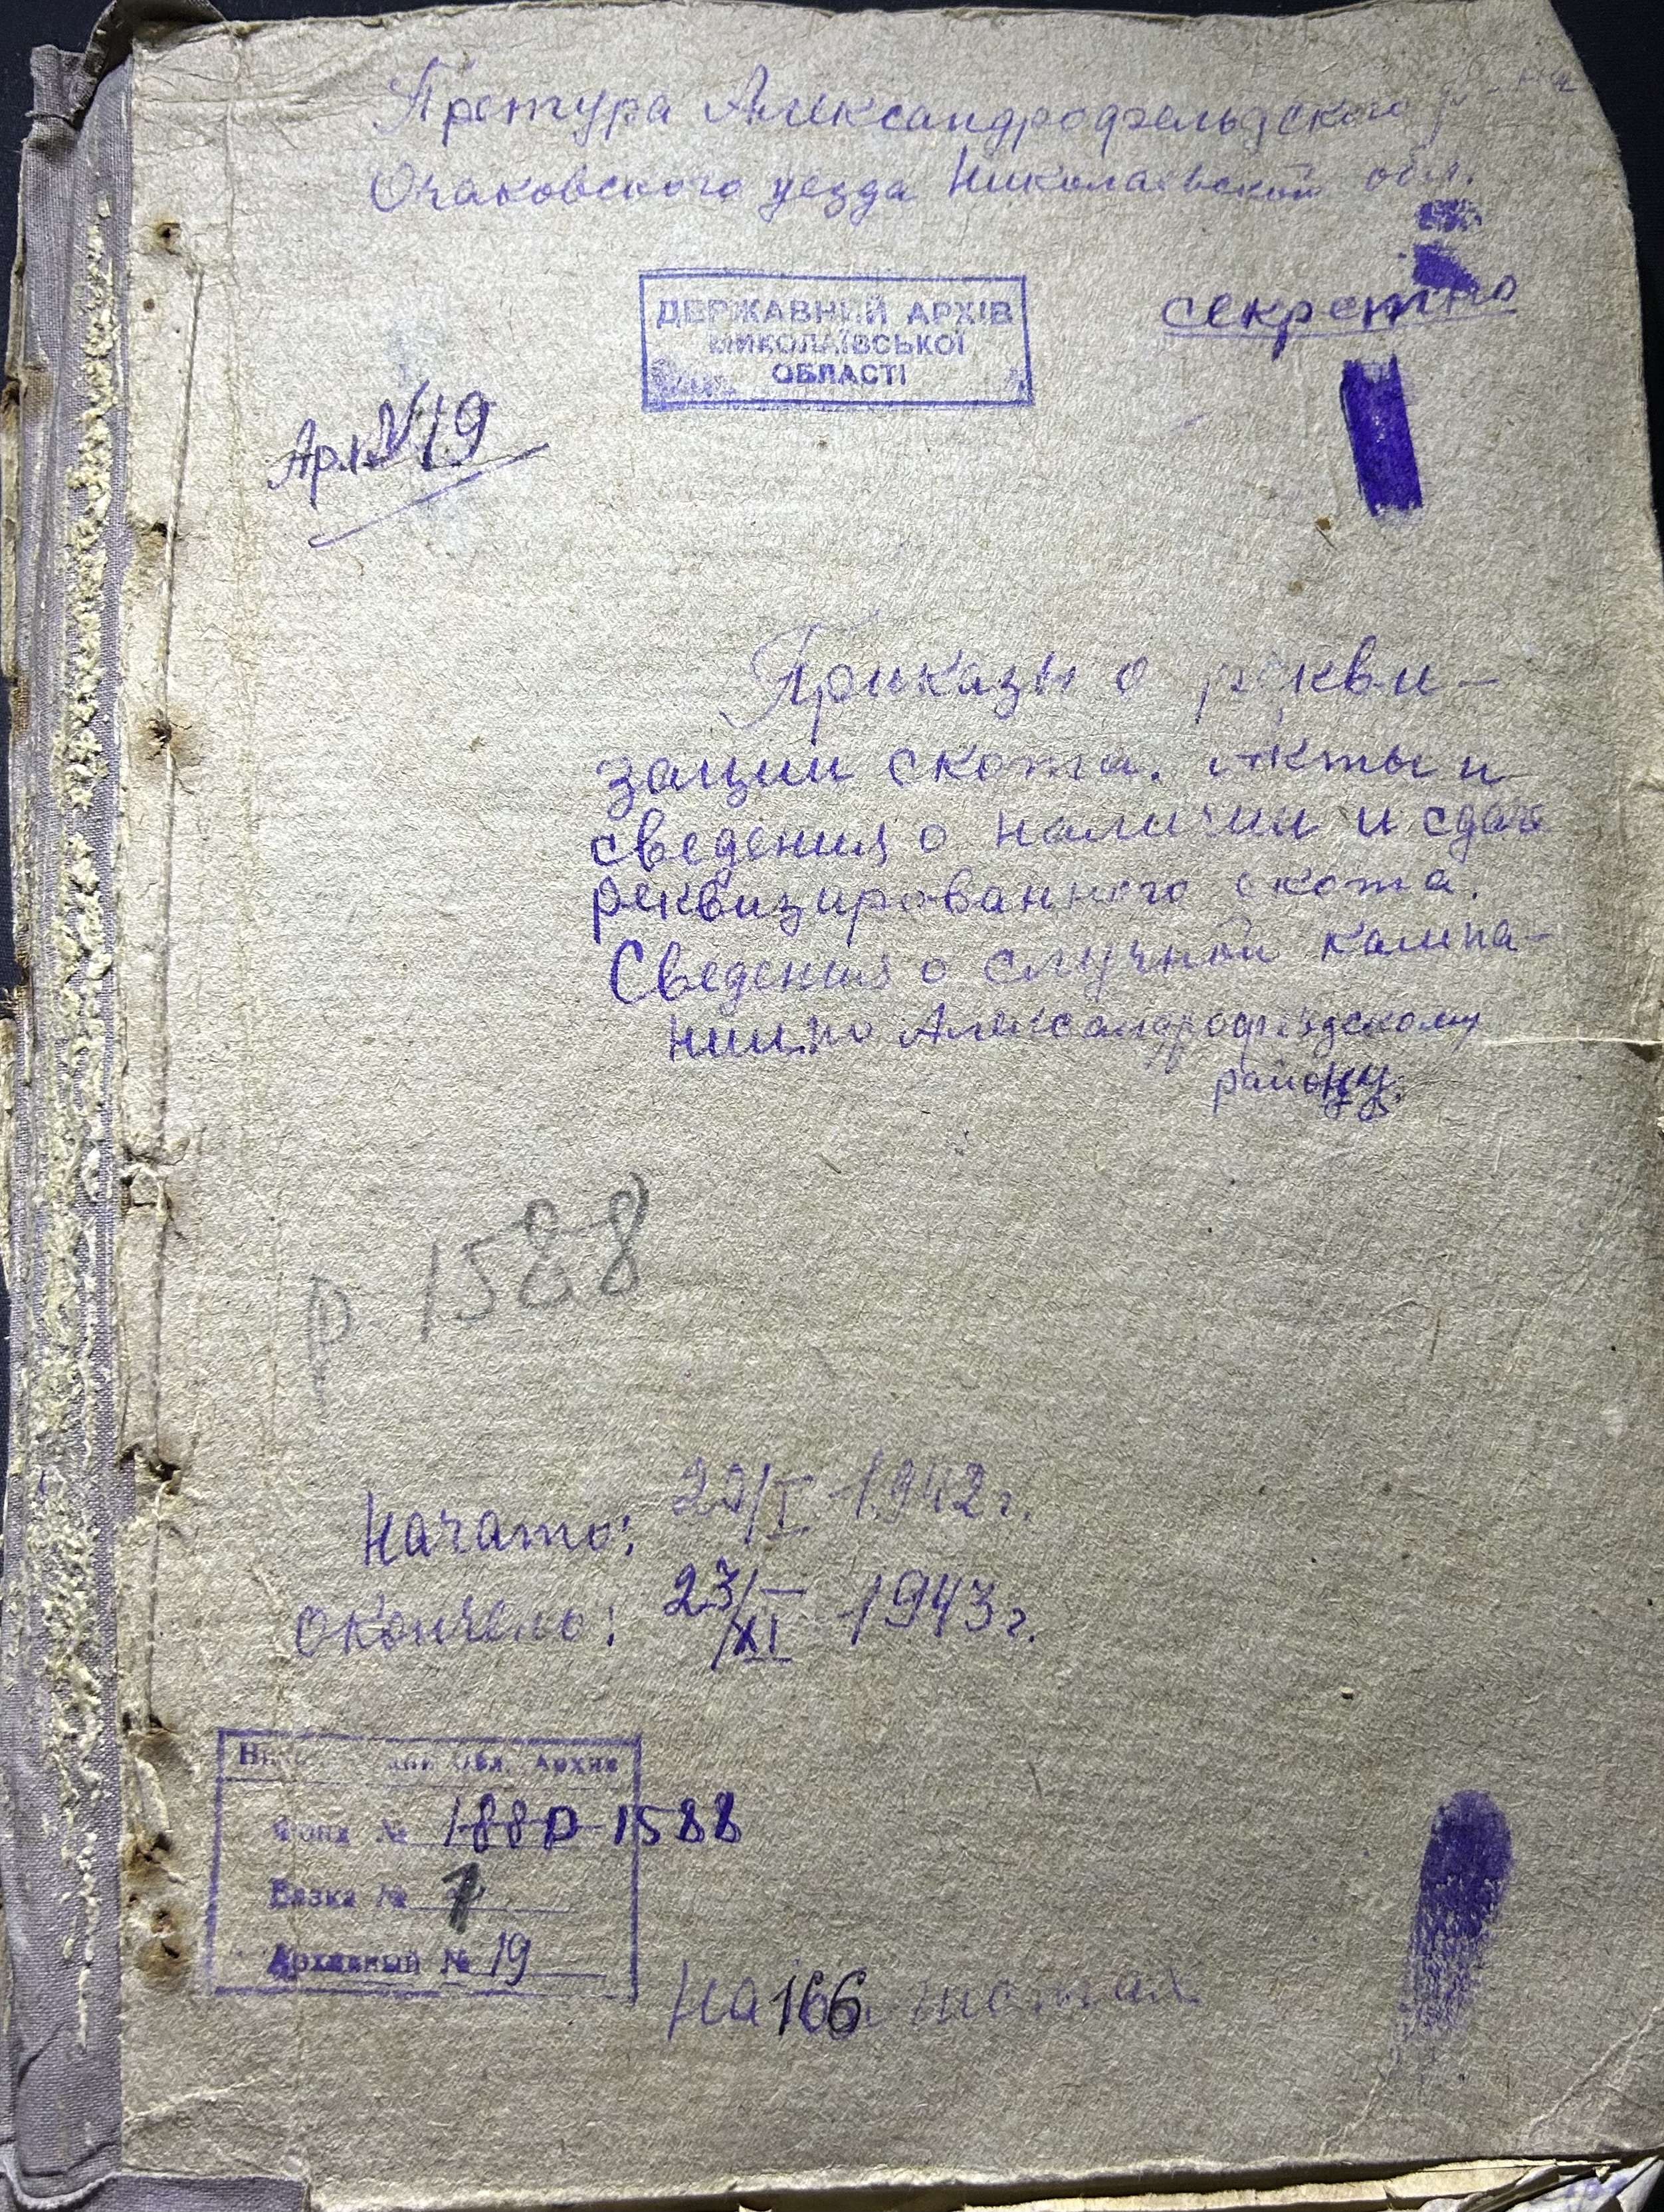 Претура Александрофельдского р-на
Очаковского уезда Николаевской обл.
ДЕРЖАВНИЙ АРХІВ
МИКОЛАЇВСЬКОЇ
ОБЛАСТІ
секретно
Арх. №19
Приказы о рекви-
зации скота. Акты и
сведения о наличии и сдаче
реквизированного скота.
Сведения о случной кампа-
нии по Александрофельдскому
району.
р 1588
Начато: 29/I 1942 г.
окончено: 23/XI 1943 г.
Обл. Архив
Фонд № 188 Р-1588
Вязка № 1
Архивный № 19
На 166 листах